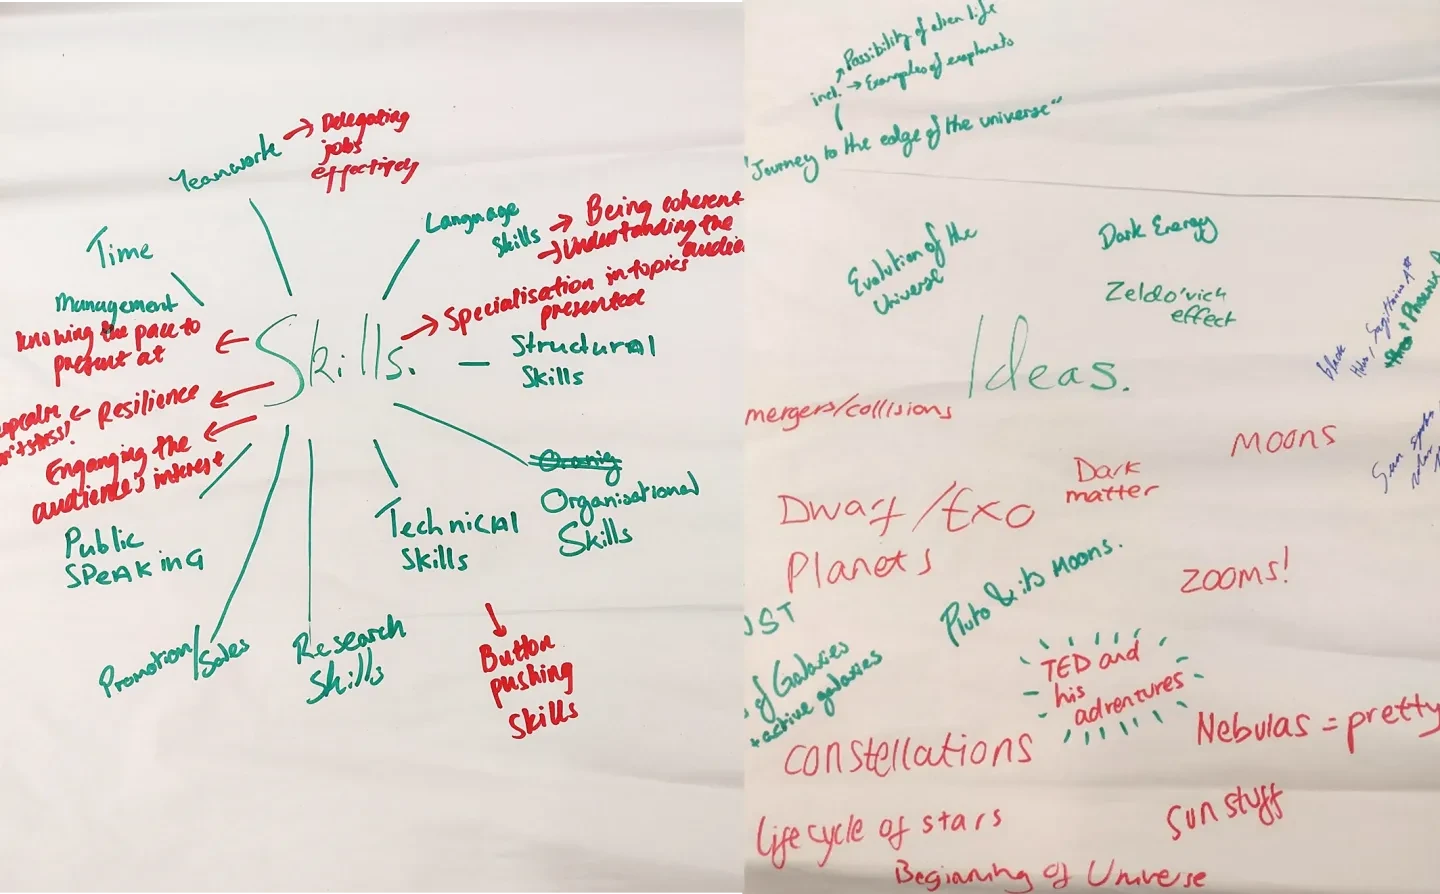 Teamwork → Delegating
jobs
effectively
Language
Skills → Being coherent
→ Understanding the
audie
Time
Management
→ Specialisation in topics
presented
knowing the pace to
present at
Skills.
Structural
Skills
← Resilience
Enganging the
audience's interest
Oranig
Organisational
Skills
Technical
Skills
Public
SPEAKING
Promotion/Sales
Research
Skills
Button
pushing
skills
Possibility of alien life
incl. → Examples of exoplanets
"Journey to the edge of the universe"
Evolution of the
Universe
Dark Energy
Zeldo'vich
effect
black
Holes, Sagittarius A*
+ Phoenix A
Ideas.
mergers/collisions
Moons
Sun spots
Dark
matter
Dwarf/Exo
Planets
Pluto & its Moons.
ZOOMS!
ST
of Galaxies
+ active galaxies
TED and
his
adventures
Nebulas = pretty
constellations
life cycle of stars
Sun stuff
Beginning of Universe